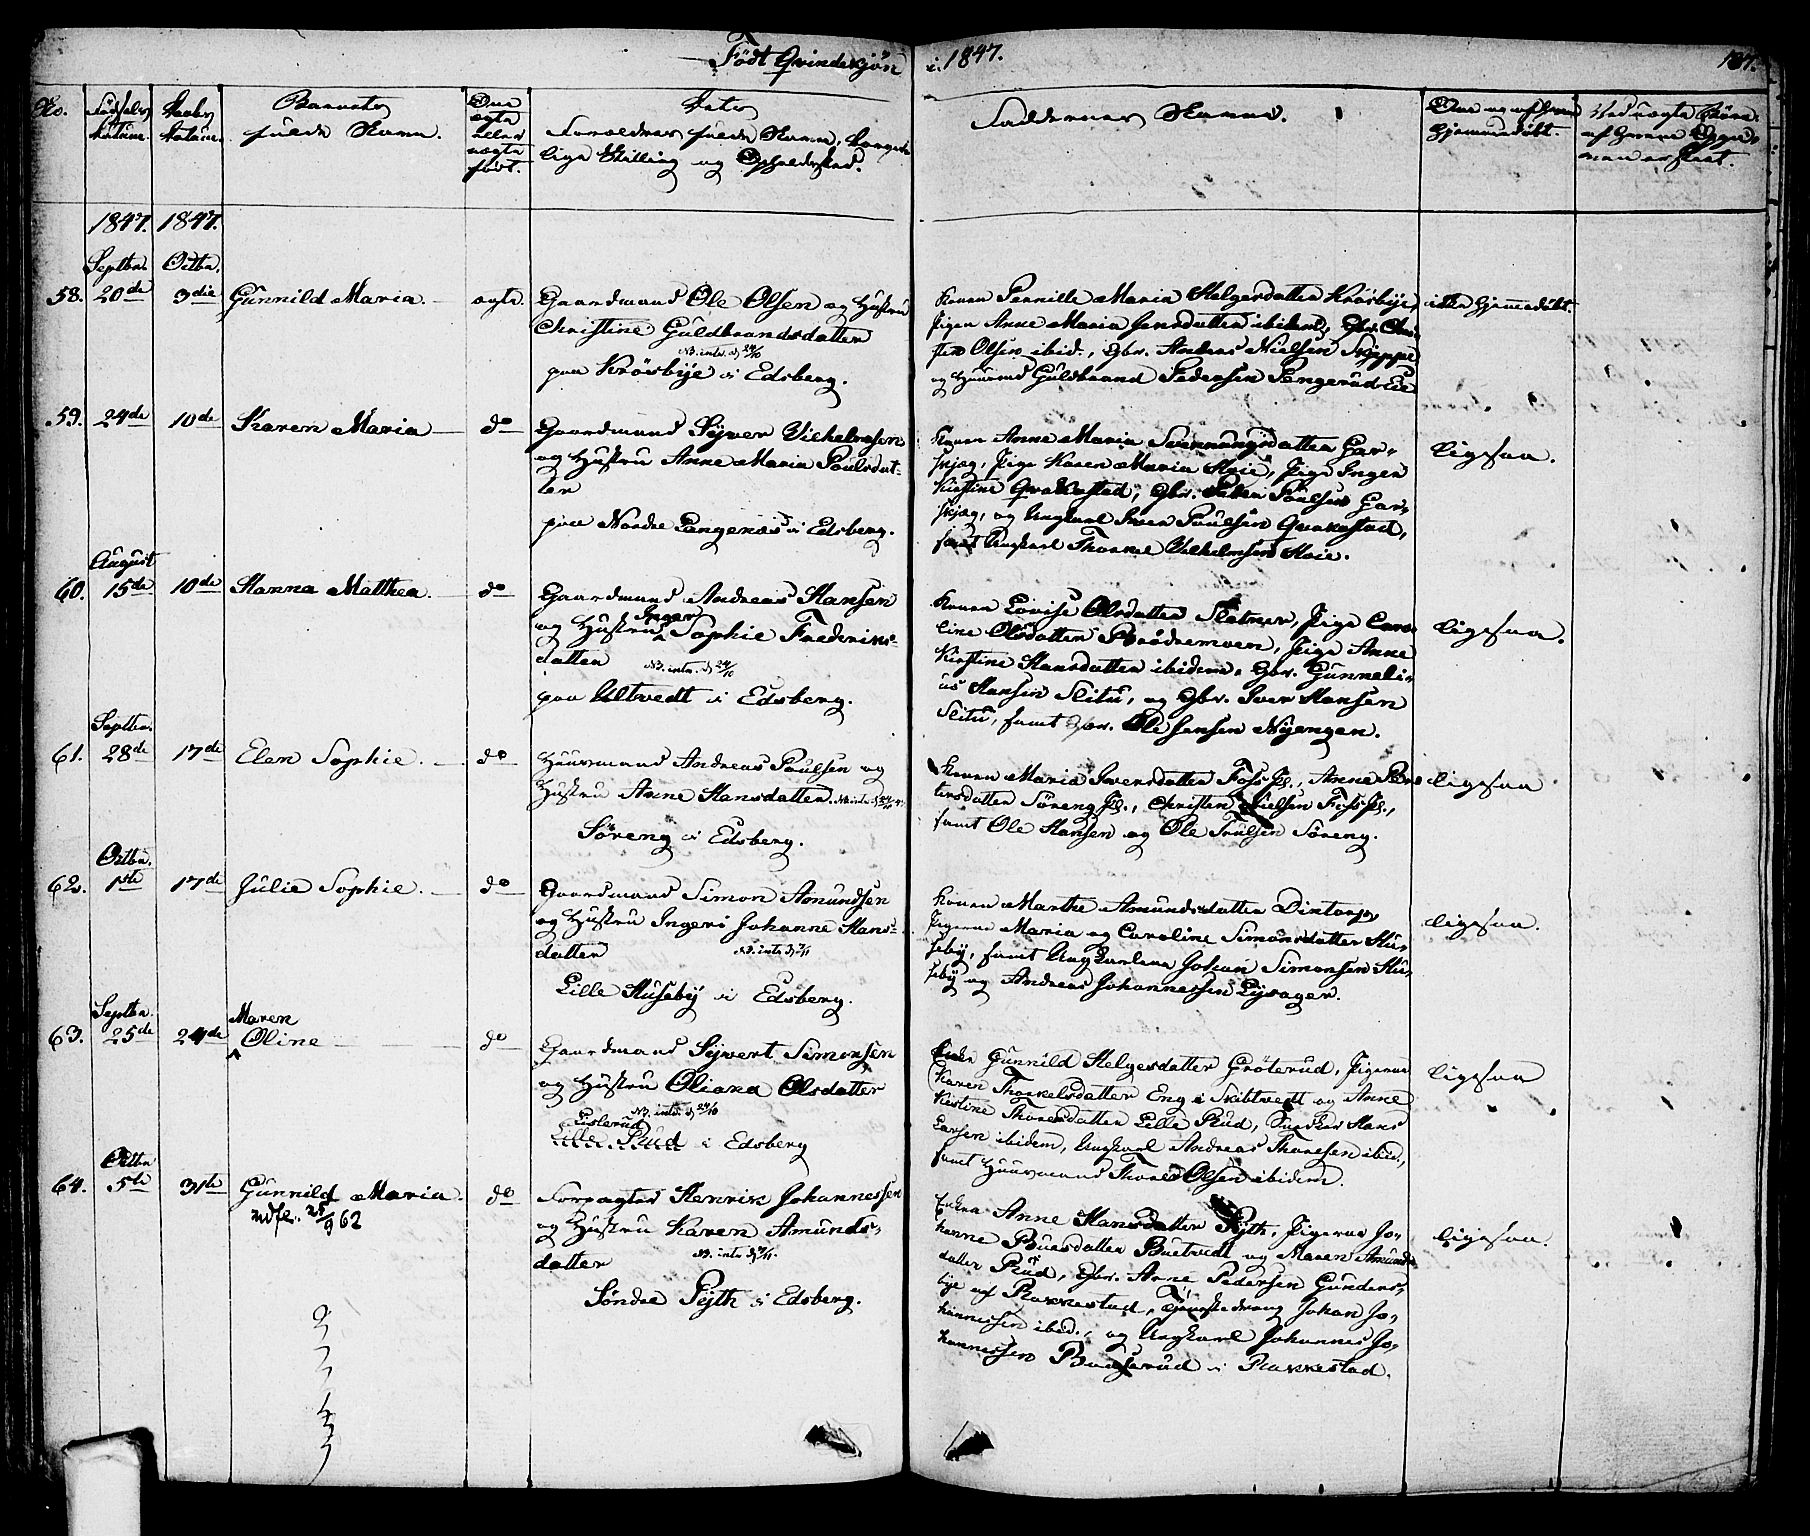 Født Qvindekjön i 1847.
137.
No.
Fødsels Datum.
Daabs Datum.
Barnets fulde Navn.
Om ægte eller uægte født.
Forældres fulde Navn, borgerlige Stilling og Opholdsted.
Faddernes Navne.
Om og af hvem hjemmedøbt.
Ved uægte Børn
1847. 1847.
Septbr. Octbr.
58. 20de 3die Gunnild Maria. ægte. Gaardmand Ole Olsen og Hustru
Christine Guldbrandsdatter
NB. intr. d 24/10
paa Krösbye i Edsberg.
Konen Pernille Maria Helgesdatter Krösbye,
Pigen Anne Maria Jensdatter ibidem, Gbr. Chri-
sten Olsen ibid., Gbr. Andreas Nielsen Skippe
og Huusmd Guldbrand Pedersen Pengerud Eie
ikke hjemmedöbt.
59. 24de 10de Karen Maria do Gaardmand Syver Vilhelmsen
og Hustru Anne Maria Poulsdat-
ter
paa Nordre Langenæs i Edsberg.
Konen Anne Maria Svenningsdatter Gar-
skjæg, Pige Karen Maria Hoie, Pige Inger
Kirstine Qvakestad, Gbr. Peder Poulsen Gar-
skjæg, og Ungkarl Iver Poulsen Qvakestad,
samt Ungkarl Thorkel Vilhelmsen Hoie.
ligesaa.
August
60. 15de 10de Hanna Mathea. do Gaardmand Andreas Hansen
og Hustru Inger Sophie Frederiks-
datter NB. intr. d 24/10
paa Ultvedt i Edsberg.
Konen Lovise Olsdatter Sletner, Pige Caro-
line Olsdatter Brödremoen, Pige Anne
Kirstine Hansdatter ibidem, Gbr. Gunneli-
us Hansen Slitu, og Gbr. Iver Hansen
Slitu, samt Gbr. Ole Jensen Nyengen.
ligesaa.
Septbr.
61. 28de 17de Elen Sophie. do Huusmand Andreas Poulsen og
Hustru Anne Hansdatter.
Söreng i Edsberg.
Konen Maria Iversdatter Foss Pl., Anne Pe-
tersdatter Söreng Pl., Christen Nielsen Foss Pl.,
samt Ole Hansen og Ole Trulsen Söreng.
ligesaa
Octbr.
62. 1ste 17de Julie Sophie. do Gaardmand Simon Amundsen
og Hustru Ingeri Johanne Hans-
datter NB. intr. d 7/11
Lille Huseby i Edsberg.
Konen Marthe Amundsdatter Dintorp,
Pigerne Maria og Caroline Simonsdatter Hu-
seby, samt Ungkarlene Johan Simonsen Hu-
seby og Andreas Johannessen Lysager.
ligesaa.
Septbr.
Maren
63. 25de 24de Oline do Gaardmand Syvert Simonsen
og Hustru Oliana Olsdatter
NB. intr. d 24/10
Lislerud
Lille Rud i Edsberg
Enke Gunnild Helgesdatter Gröterud, Pigerne
Karen Thorkelsdatter Eng i Skibtvedt og Anne
Kirstine Thoresdatter Lille Rud, Snedker Hans
Larsen ibidem, Ungkarl Andreas Thoresen ibid.,
samt Huusmand Thore Olsen ibidem.
ligesaa
Octbr
64. 5te 31te Gunnild Maria. do Forpagter Henrik Johannessen
udfl. 25/9 62
og Hustru Karen Amunds-
datter NB. intr. d 7/11
Söndre Ryth i Edsberg.
Enken Anne Hansdatter Ryth, Pigerne Jo-
hanne Buesdatter Buetvedt og Maren Amunds-
datter Rud, Gbr. Arne Pedersen Gunders-
bye af Rakkestad, Tjenestedreng Johan Jo-
hannessen ibid., og Ungkarl Johannes Jo-
hannessen Baugerud i Rakkestad.
ligesaa.